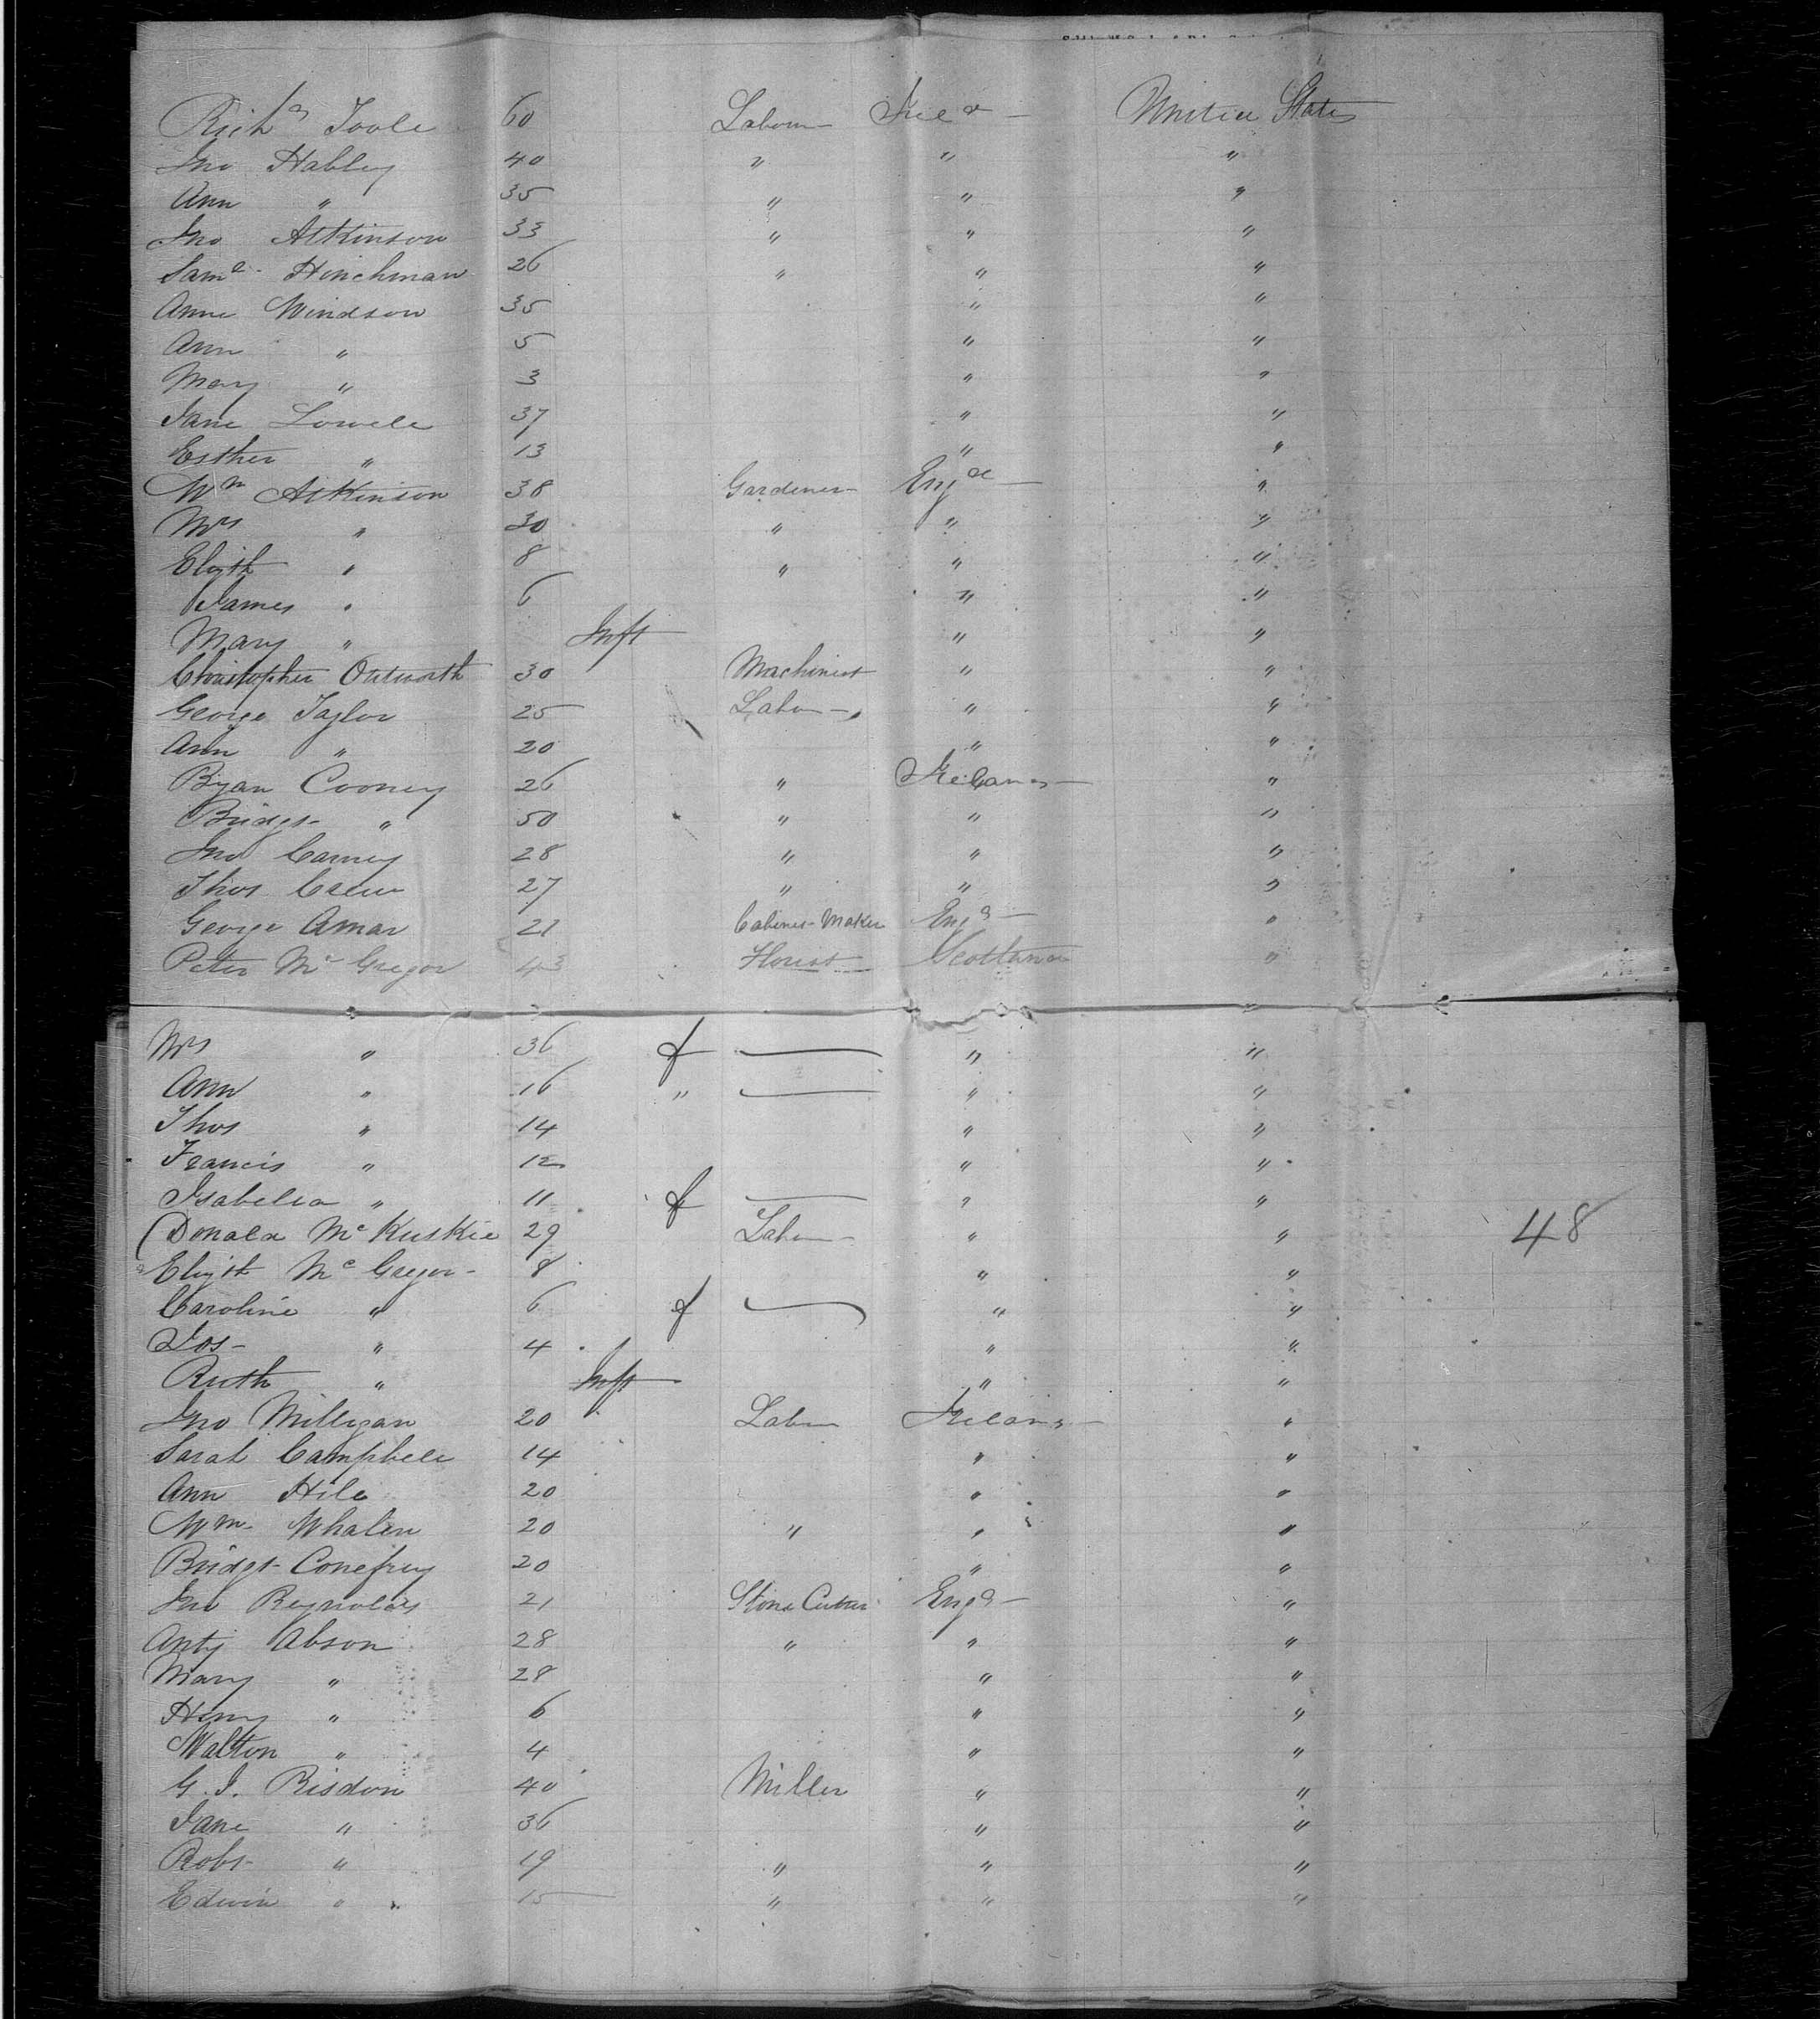 Richd Toole 60 Labour Ireld United States
Jno Habley 40 " " "
Ann " 35 " " "
Jno Atkinson 33 " " "
Saml Hinchman 26 " " "
Anne Windson 35 " "
Ann " 5 " "
Mary " 3 " "
Jane Lowell 37 " "
Esther " 13 " "
Wm Atkinson 38 Gardener Engd "
Mrs " 30 " " "
Elizth " 8 " " "
James " 6 " "
Mary " Inft " "
Christopher Outworth 30 Machinist " "
George Taylor 25 Labor " "
Ann " 20 " "
Bryan Cooney 26 " Ireland "
Bridgt " 50 " " "
Jno Carney 28 " " "
Thos 27 " " "
George Amar 21 Cabinet-Maker Engd "
Peter McGregor 43 Florist Scotland "
Mrs " 36 f " "
Ann " 16 " " "
Thos " 14 " "
Francis " 12 " "
Isabella " 11 f " "
Donald McKuskie 29 Labor " " 48
Elizth McGregor 8 " "
Caroline " 6 f " "
Jos " 4 " "
Ruth " Inft " "
Jno Milligan 20 Labor Ireland "
Sarah Campbell 14 " "
Ann Hile 20 " "
Wm Whalen 20 " " "
Bridgt Conefrey 20 " "
Jno Reynolds 21 Stone Cutter Engd "
Anty Abson 28 " " "
Mary " 28 " "
Henry " 6 " "
Walton " 4 " "
G. J. Risdon 40 Miller " "
Jane " 36 " "
Robt " 19 " " "
Edwin " 15 " " "